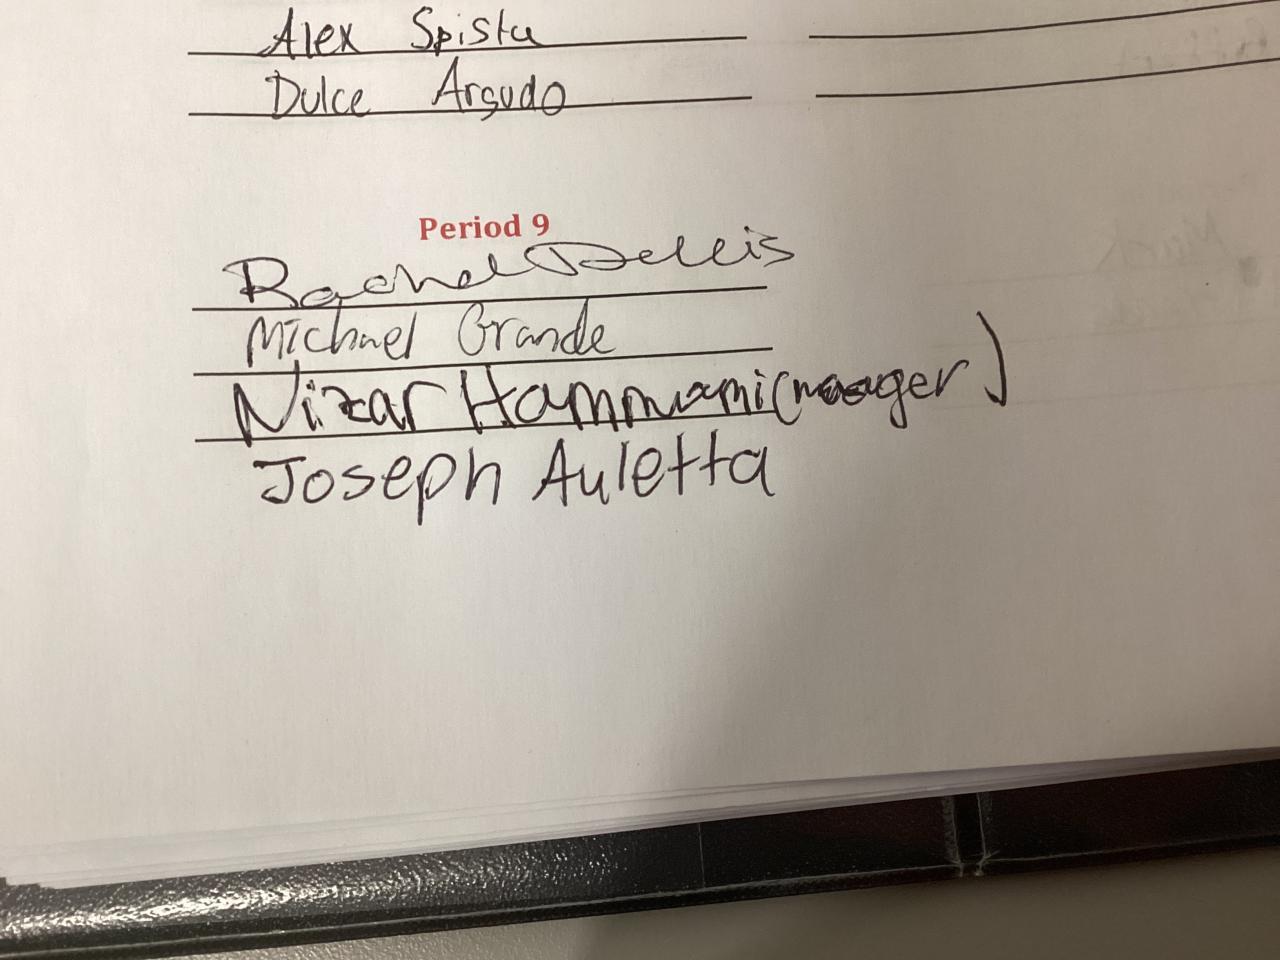 Alex Spista
Dulce Argudo
Period 9
Rachel Dellis
Michael Grande
Nizar Hammami (manager)
Joseph Auletta